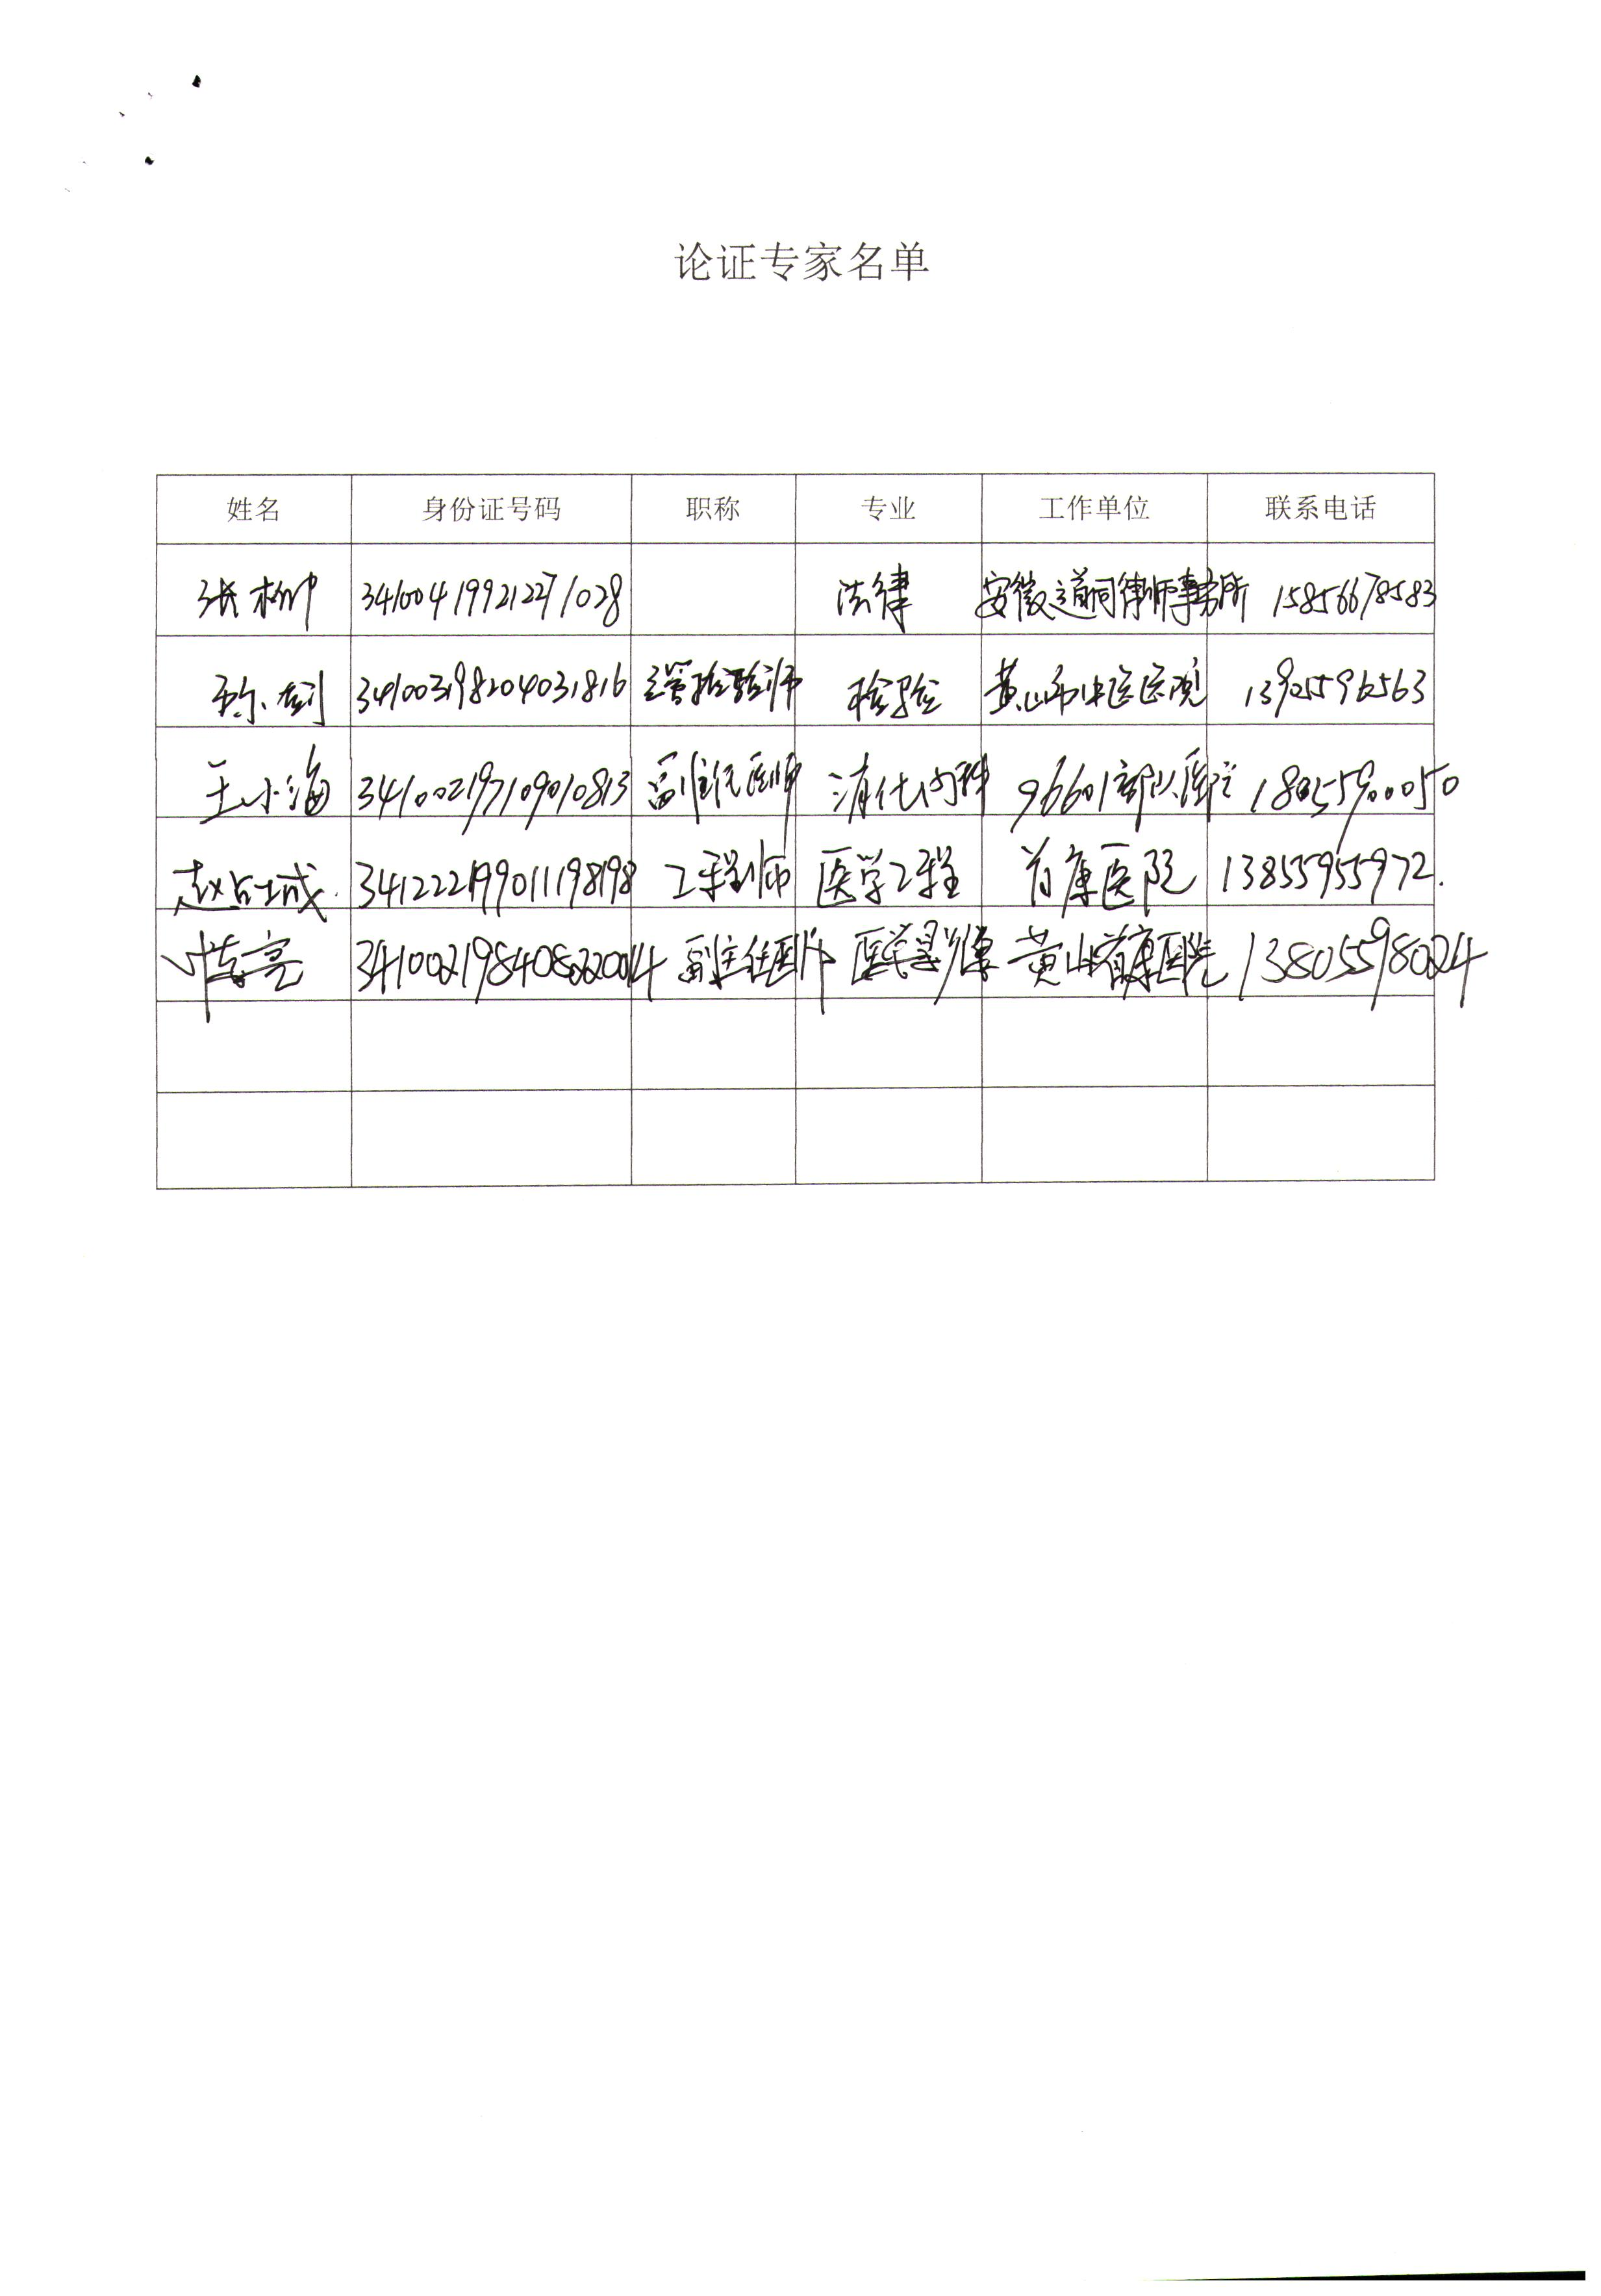 论证专家名单
姓名 身份证号码 职称 专业 工作单位 联系电话
张柳 341004199212271028 法律 安徽道同律师事务所 15856678583
341003198204031816 主管检验师 检验 黄山市中医医院
王小海 341002197109010813 副主任医师 消化内科 96601部队医院 18055900050
赵占城 341222199011198198 工程师 医学工程 首康医院 13855955972.
叶春亮 341002198408220014 副主任医师 医学影像 黄山首康医院 13805598024